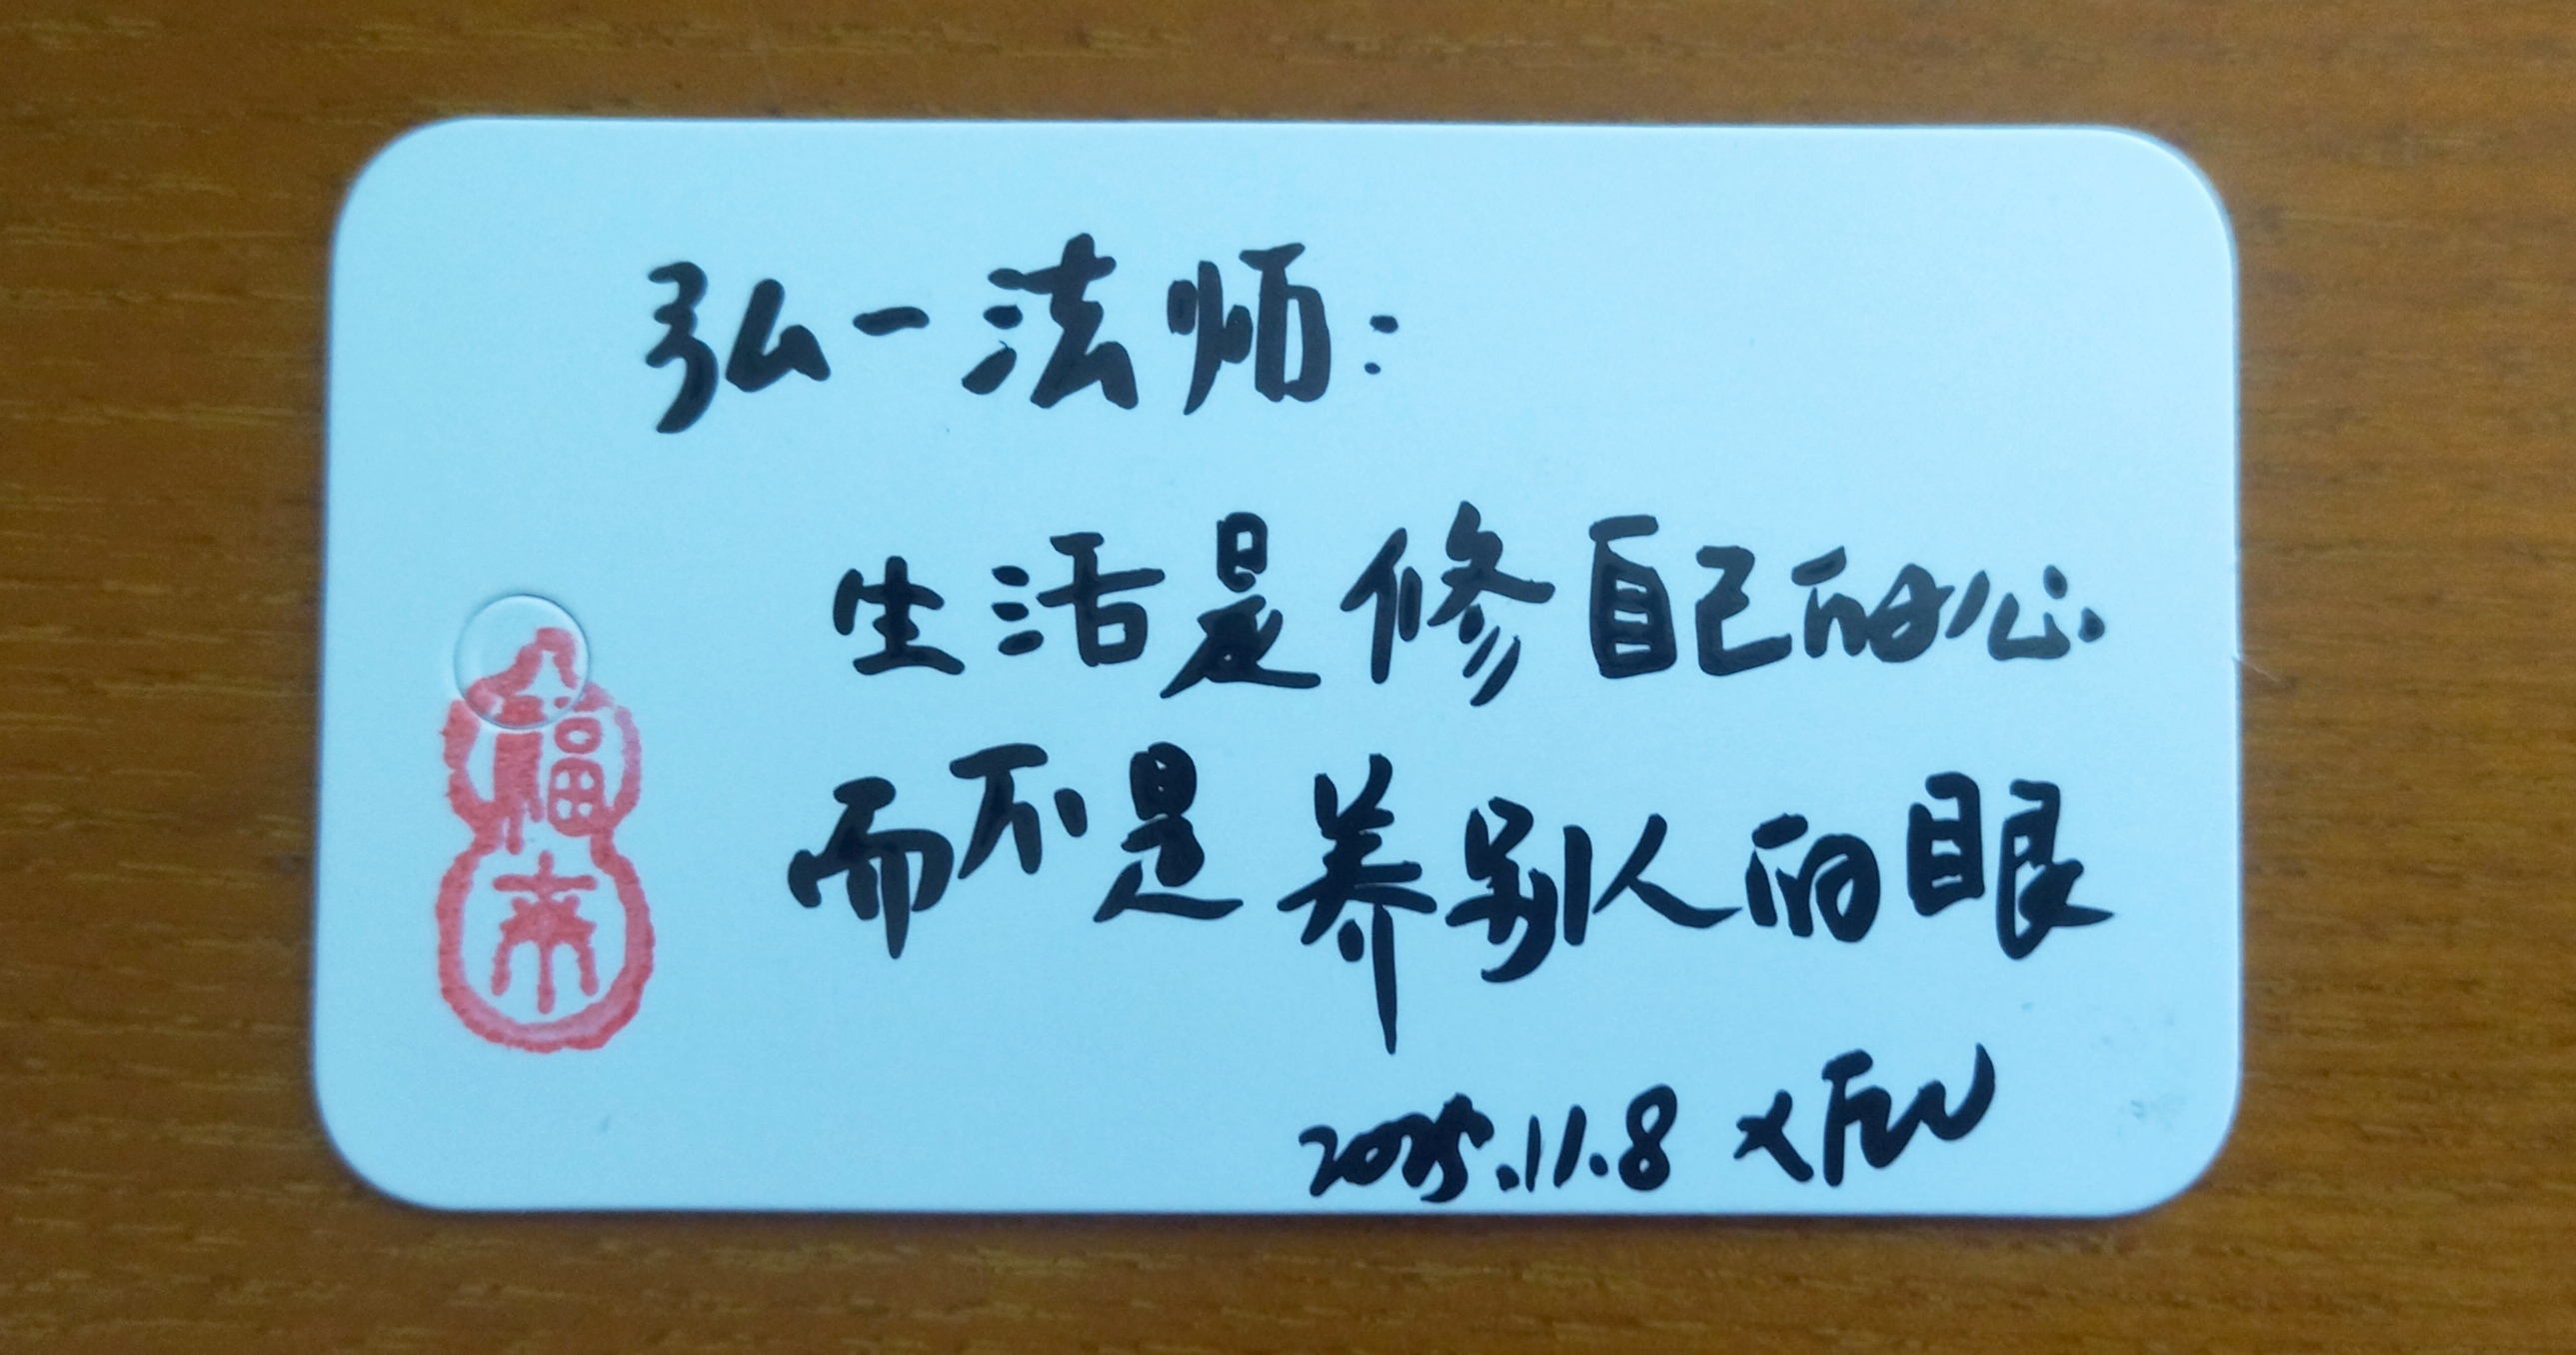 弘一法师:
生活是修自己的心.
而不是养别人的眼
2025.11.8
福
来